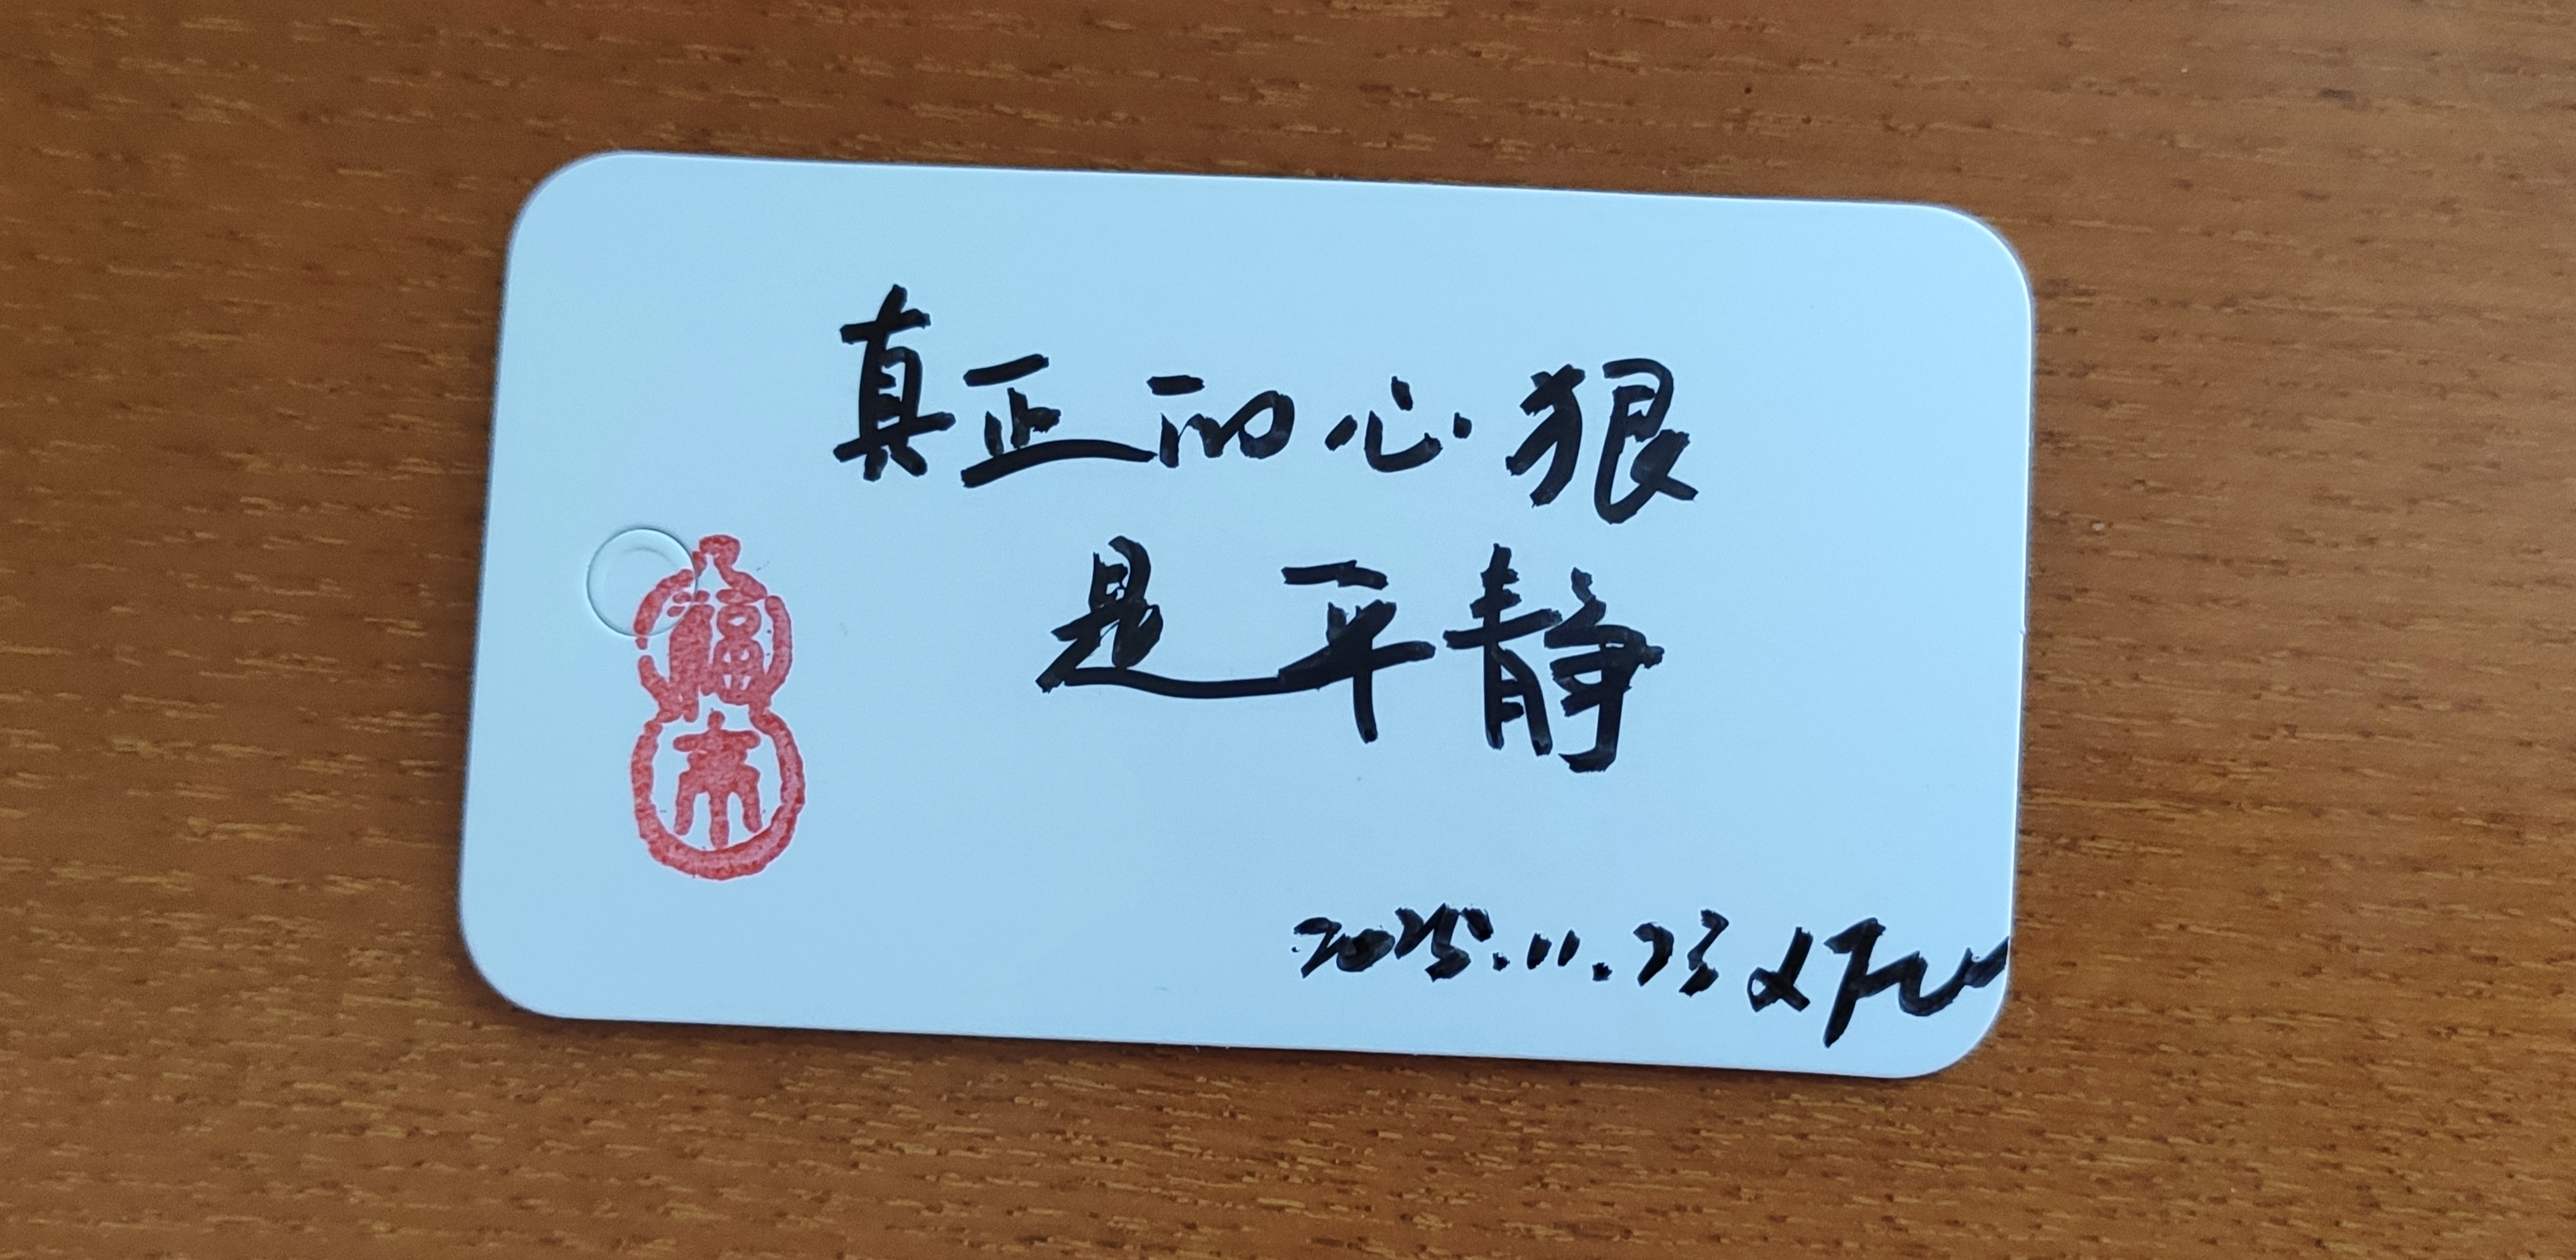 真正的心狠
是平静
福
2025.11.23